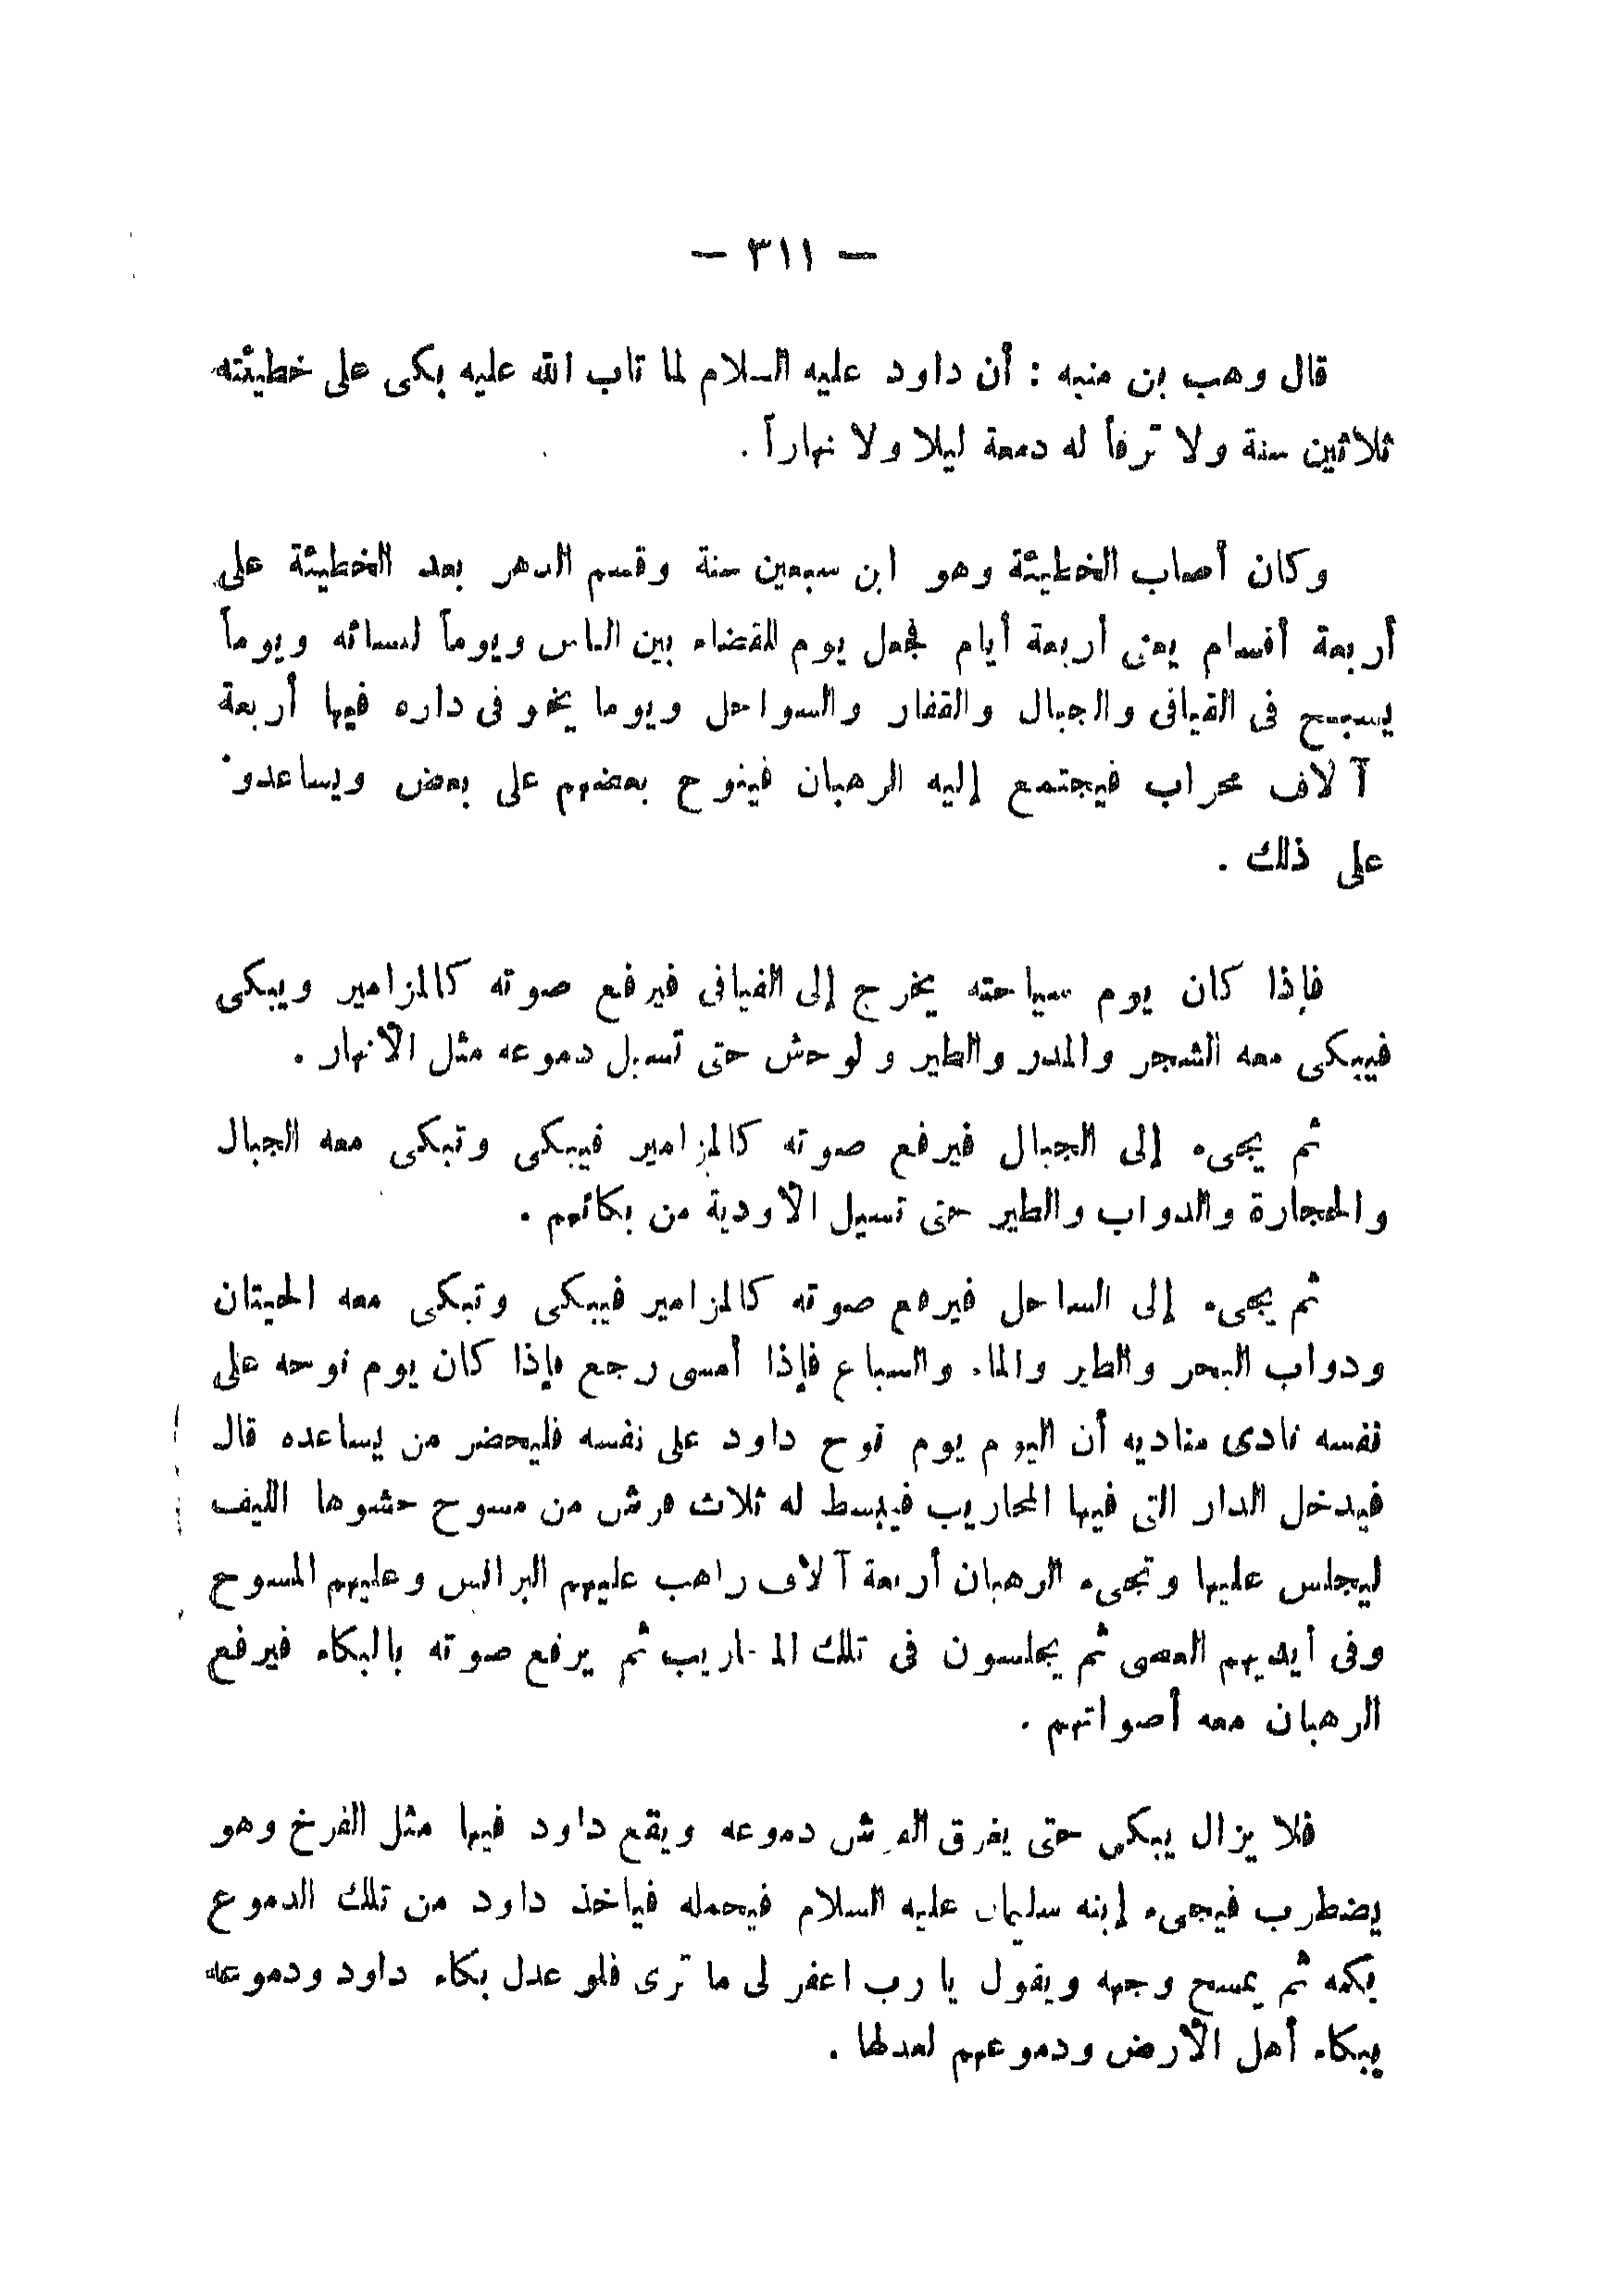 — ٣١١ —
قال وهب بن منبه : أن داود عليه السلام لما تاب الله عليه بكى على خطيئته
ثلاثين سنة ولا ترفأ له دمعة ليلا ولا نهاراً .
وكان أصاب الخطيئة وهو ابن سبعين سنة وقسم الدهر بعد الخطيئة على
أربعة أقسام يعنى أربعة أيام فجعل يوم للقضاء بين الناس ويوماً لنسائه ويوماً
يسبح فى القيافى والجبال والقفار والسواحل ويوما يخو فى داره فيها أربعة
آلاف محراب فيجتمع إليه الرهبان فينوح بعضهم على بعض ويساعدو
على ذلك .
فإذا كان يوم سياحته يخرج إلى الفيافى فيرفع صوته كالمزامير ويبكى
فيبكى معه الشجر والمدر والطير و لوحش حتى تسبل دموعه مثل الأنهار .
ثم يجىء إلى الجبال فيرفع صوته كالمزامير فيبكى وتبكى معه الجبال
والحجارة والدواب والطير حتى تسيل الأودية من بكائهم .
ثم يجىء إلى الساحل فيرفع صوته كالمزامير فيبكى وتبكى معه الحيتان
ودواب البحر والطير والماء والسباع فإذا أمسى رجع فإذا كان يوم نوحه على
نفسه نادى مناديه أن اليوم يوم نوح داود على نفسه فليحضر من يساعده قال
فيدخل الدار التى فيها المحاريب فيبسط له ثلاث فرش من مسوح حشوها الليف
ليجلس عليها وتجىء الرهبان أربعة آلاف راهب عليهم البرانس وعليهم المسوح
وفى أيديهم العصى ثم يجلسون فى تلك المحاريب ثم يرفع صوته بالبكاء فيرفع
الرهبان معه أصواتهم .
فلا يزال يبكى حتى يفرق الفرش دموعه ويقع داود فيها مثل الفرخ وهو
يضطرب فيجىء إبنه سليمان عليه السلام فيحمله فياخذ داود من تلك الدموع
بكمه ثم يمسح وجهه ويقول يا رب اعفر لى ما ترى فلو عدل بكاء داود ودموعه
ببكاء أهل الأرض ودموعهم لعدلها .